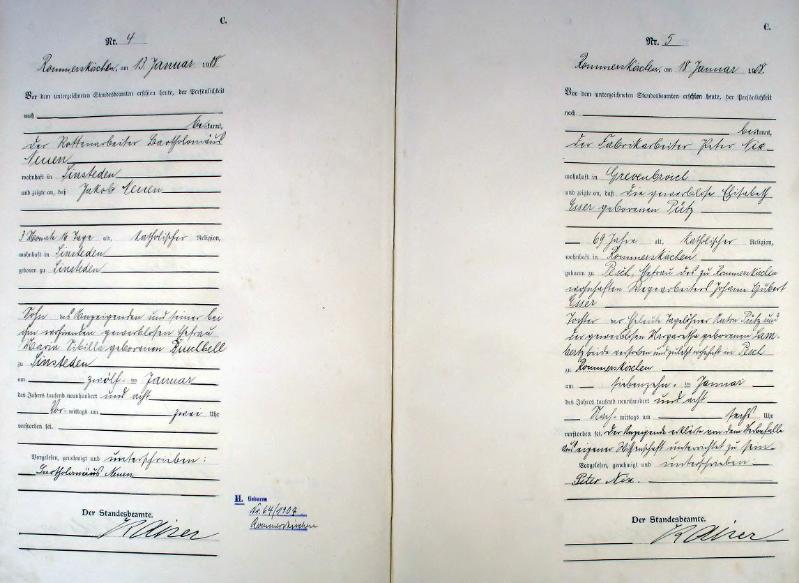 C.
Nr. 4
Rommerskirchen, am 13 Januar 1908.
Vor dem unterzeichneten Standesbeamten erschien heute, der Persönlichkeit
nach
bekannt,
der Rottenarbeiter Bartholomäus
Neuen
wohnhaft in Sinsteden
und zeigte an, daß Jakob Neuen
3 Monate 16 Tage alt, katholischer Religion,
wohnhaft in Sinsteden
geboren zu Sinsteden
Sohn des Anzeigenden und seiner bei
ihm wohnenden gewerblosen Ehefrau
Maria Sibilla geborenen
zu Sinsteden
am zwölften Januar
des Jahres tausend neunhundert und acht
Vor mittags um zwei Uhr
verstorben sei.
Vorgelesen, genehmigt und unterschrieben:
Bartholomäus Neuen
Der Standesbeamte.
Kaiser
H. Geboren
Nr. 64/1907
Rommerskirchen
C.
Nr. 5
Rommerskirchen, am 18 Januar 1908.
Vor dem unterzeichneten Standesbeamten erschien heute, der Persönlichkeit
nach
bekannt,
der Fabrikarbeiter Peter Nix
wohnhaft in Grevenbroich
und zeigte an, daß die gewerblose Elisabeth
Esser geborenen Pütz
69 Jahre alt, katholischer Religion,
wohnhaft in Rommerskirchen
geboren zu Pesch, Ehefrau des zu Rommerskirchen
wohnhaften Wegearbeiters Johann Hubert
Esser
Tochter der Eheleute Tagelöhner Anton Pütz und
der gewerblosen Margaretha geborenen Lam-
bertz beide verstorben und zuletzt wohnhaft in Pesch
zu Rommerskirchen
am siebenzehnten Januar
des Jahres tausend neunhundert und acht
Nach mittags um sechs Uhr
verstorben sei. Der Anzeigende erklärte von dem Sterbefalle
aus eigener Wissenschaft unterrichtet zu sein.
Vorgelesen, genehmigt und unterschrieben
Peter Nix.
Der Standesbeamte.
Kaiser